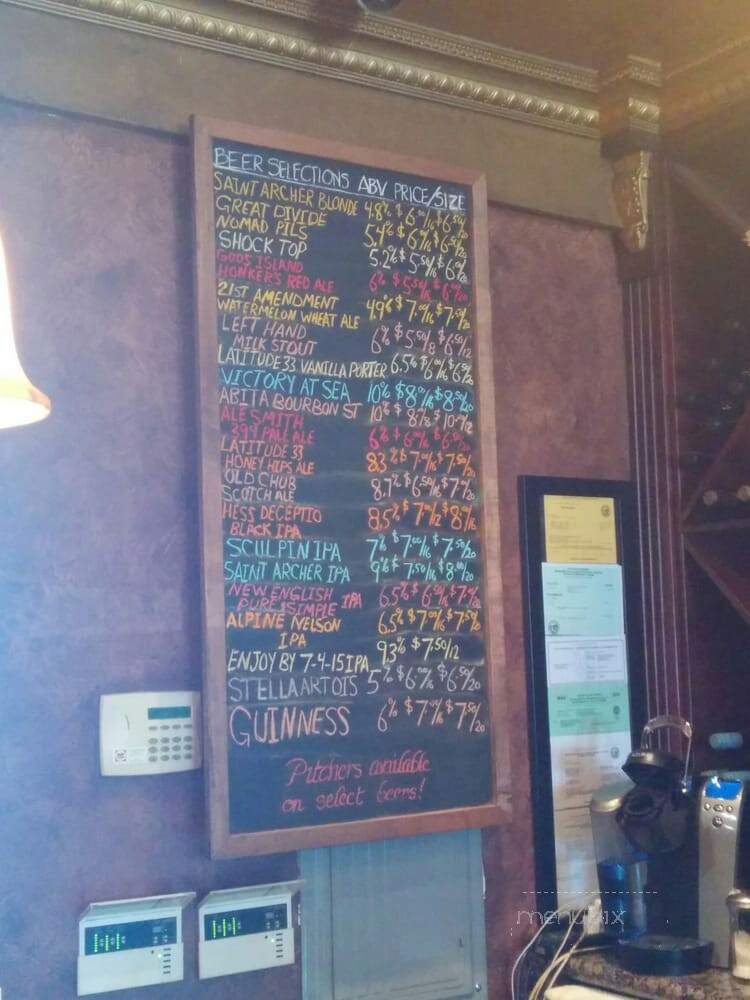 BEER SELECTIONS ABV PRICE/SIZE
SAINT ARCHER BLONDE 4.8% $6.00/16 $6.50/20
GREAT DIVIDE
NOMAD PILS 5.4% $6/16 $6.50/20
SHOCK TOP 5.2% $5.50/16 $6.00/20
GOOS ISLAND
HONKER'S RED ALE 6% $5.50/16 $6.00/20
21ST AMENDMENT
WATERMELON WHEAT ALE 4.9% $7.00/16 $7.50/20
LEFT HAND
MILK STOUT 6% $5.50/8 $6.50/12
LATITUDE 33 VANILLA PORTER 6.5% $6.00/16 $6.50/20
VICTORY AT SEA 10% $8.00/16 $8.50/20
ABITA BOURBON ST 10% $8/8 $10.00/12
ALE SMITH
394 PALE ALE 6% $6.00/16 $6.50/20
LATITUDE 33
HONEY HIPS ALE 8.3% $7.00/16 $7.50/20
OLD CHUB
SCOTCH ALE 8.7% $6.50/16 $7.00/20
HESS DECEPTIO
BLACK IPA 8.5% $7.00/12 $8.00/16
SCULPIN IPA 7% $7.00/16 $7.50/20
SAINT ARCHER IPA 9% $7.50/16 $8.00/20
NEW ENGLISH
PURE &SIMPLE IPA 6.5% $6.00/16 $7.00/20
ALPINE NELSON
IPA 6.5% $7.00/16 $7.50/20
ENJOY BY 7-4-15 IPA 9.3% $7.50/12
STELLA ARTOIS 5% $6.00/16 $6.50/20
GUINNESS 6% $7.00/16 $7.50/20
Pitchers available
on select beers!
menupix